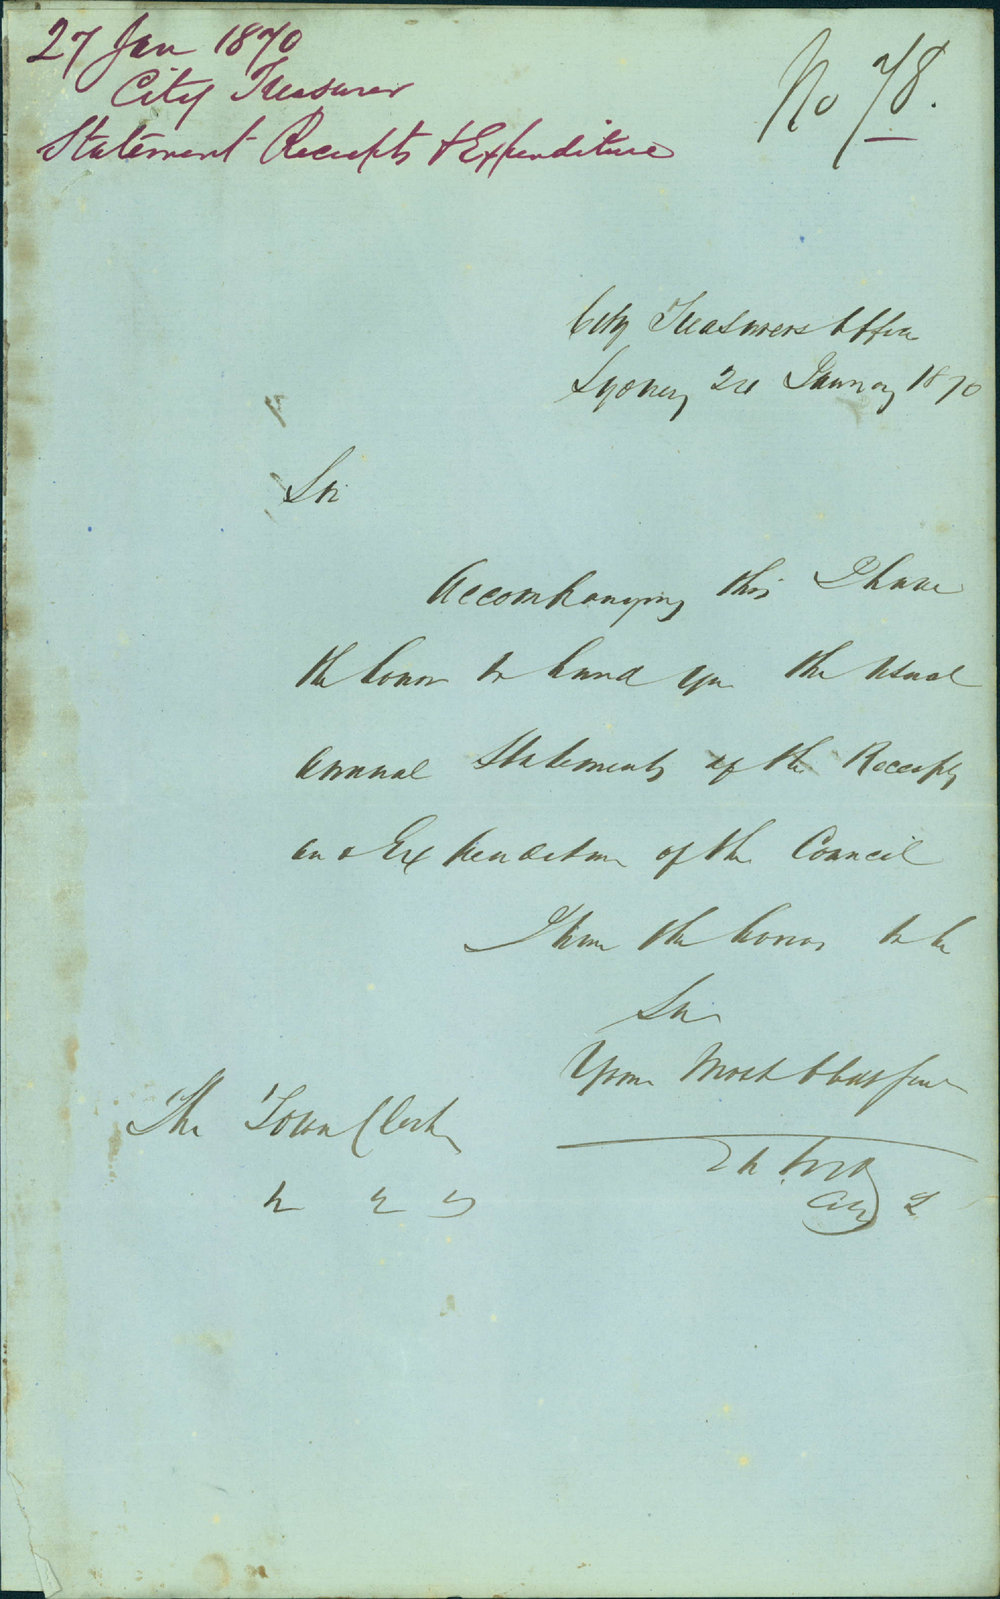 27 Jan 1870
City Treasurer
Statement Receipts & Expenditure
No 78.
City Treasurers Office
Sydney January 1870
Sir
Accompanying this I have
the honor to hand you the usual
annual Statements of the Receipts
and Expenditure of the Council
I have the honor to be
Sir
Your Most Obdt Servt
The Town Clerk
City T